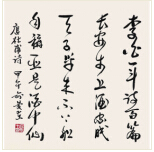 李白一斗诗百篇
长安市上酒家眠
天子呼来不上船
自称臣是酒中仙